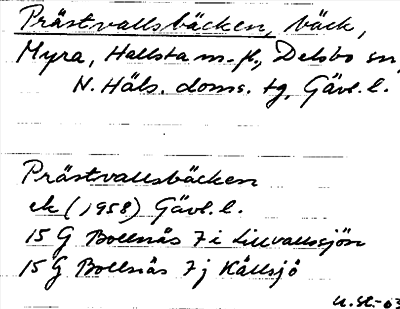 Prästvallsbäcken, bäck,
Myra, Hallsta m. fl., Delsbo sn,
N. Häls. doms. tg, Gävl. l.
Prästvallsbäcken
ek (1958) Gävl. l.
15 G Bollnäs 7 i Lillvallssjön
15 G Bollnäs 7 j Källsjö
U. St.-63